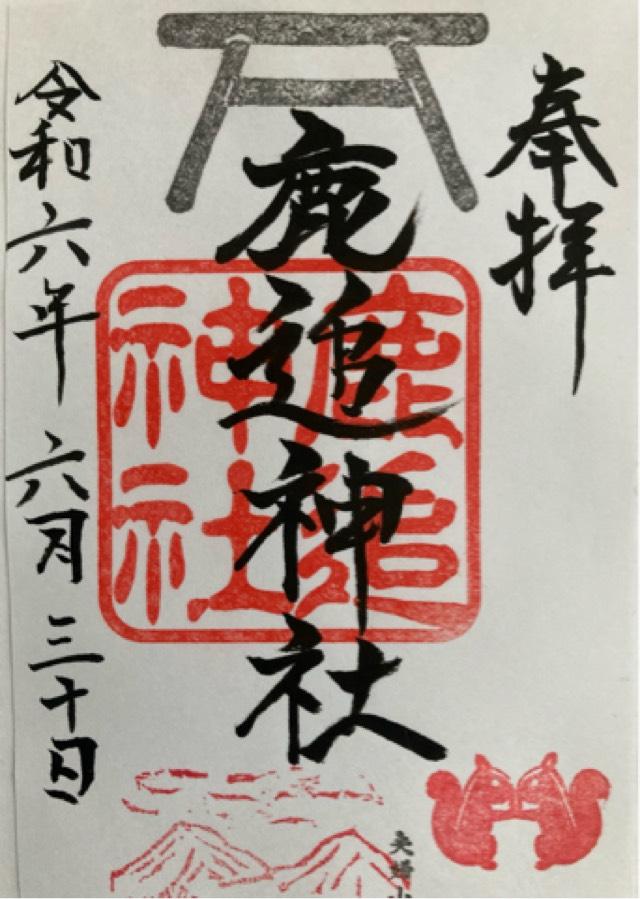 奉拝
鹿追神社
鹿追
神社
令和六年 六月 三十日
夫婦山